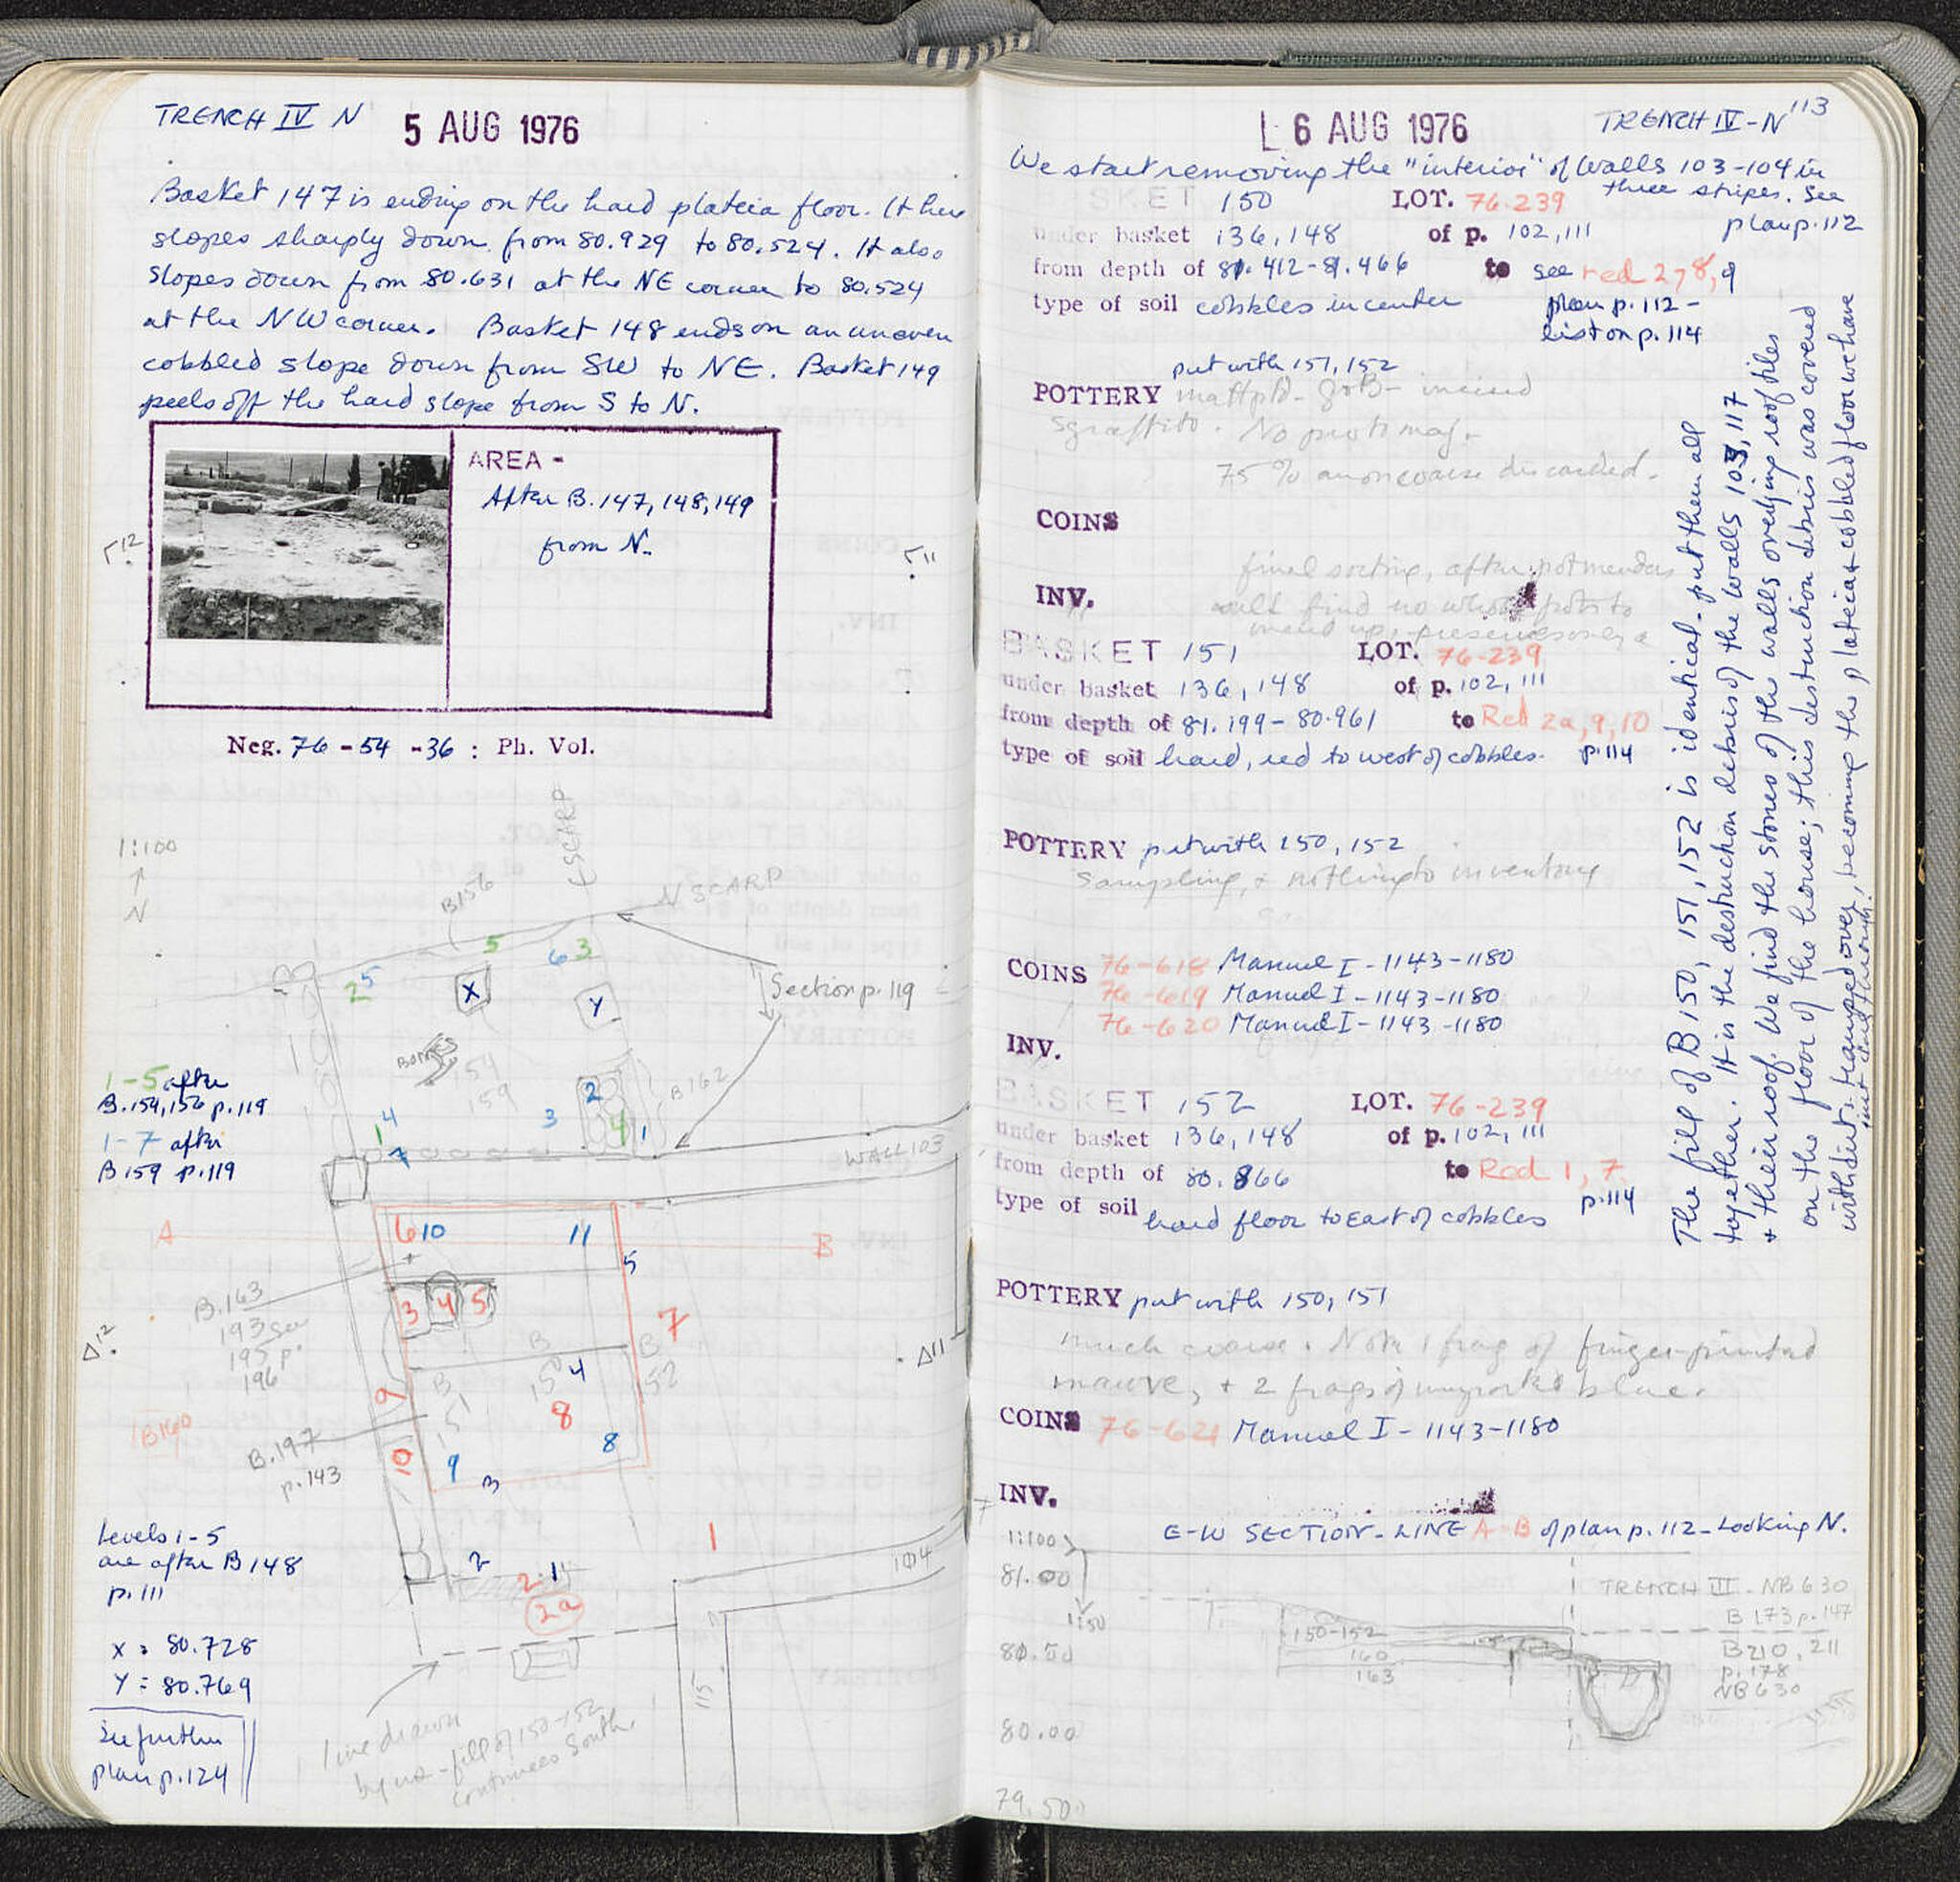 TRENCH IV N 5 AUG 1976
Basket 147 is ending on the hard plateia floor. It here
slopes sharply down from 80.929 to 80.524. It also
slopes down from 80.631 at the NE corner to 80.524
at the NW corner. Basket 148 ends on an uneven
cobbled slope down from SW to NE. Basket 149
peels off the hard slope from S to N.
AREA -
After B. 147, 148, 149
from N.
Γ12
Γ11
Neg. 76-54-36 : Ph. Vol.
1:100
N
E SCARP
B156
N SCARP
5
6 3
2 5
X
Y
Section p. 119
Bones
154
159
B162
2
3
4
4
1
1
7
1-5 after
B. 154, 156 p. 119
1-7 after
B 159 p. 119
WALL 103
A
6 10
11
B
5
B. 163
193 see
195 p.
196
3 4 5
7
Δ12
Δ11
B
150
4
B
152
B
151
9
8
B160
B. 197
p. 143
10
9
8
B
Levels 1-5
are after B 148
p. 111
2
2
1
2a
1
104
115
X = 80.728
Y = 80.769
See further
plan p. 124
line drawn
by us - fill of 150-152
continues South
113
6 AUG 1976 TRENCH IV-N
We start removing the "interior" of Walls 103-104 in
three stripes. See
plan p. 112
BASKET 150 LOT. 76-239
under basket 136, 148 of p. 102, 111
from depth of 81.412-81.466 to see red 2, 8, 9
plan p. 112 -
list on p. 114
type of soil cobbles in center
put with 151, 152
POTTERY matt ptd - incised
Sgraffito. No protomaj.
75% coarse discarded.
COINS
final sorting, after potmenders
will find no whole pots to
mend up, preserves only a
INV.
BASKET 151 LOT. 76-239
under basket 136, 148 of p. 102, 111
from depth of 81.199-80.961 to Red 2a, 9, 10
p. 114
type of soil hard, red to west of cobbles.
POTTERY put with 150, 152
Sampling, + nothing to inventory
COINS 76-618 Manuel I - 1143-1180
76-619 Manuel I - 1143-1180
76-620 Manuel I - 1143-1180
INV.
BASKET 152 LOT. 76-239
under basket 136, 148 of p. 102, 111
from depth of 80.866 to Red 1, 7
p. 114
type of soil hard floor to East of cobbles
POTTERY put with 150, 151
much coarse. Note 1 frag of finger-printed
mauve, + 2 frags of blue.
COINS 76-621 Manuel I - 1143-1180
INV.
The fill of B 150, 151, 152 is identical - put them all
together. It is the destruction debris of the walls 103, 117
+ their roof. We find the stones of the walls overlying roof tiles
on the floor of the house; this destruction debris was covered
with dirt + tramped over, becoming the plateia + cobbled floor we have
just dug through.
E-W SECTION - LINE A-B of plan p. 112 - Looking N.
1:100
81.00
1:50
80.50
80.00
79.50
150-152
160
163
TRENCH III - NB 630
B 173 p. 147
B 210, 211
p. 178
NB 630